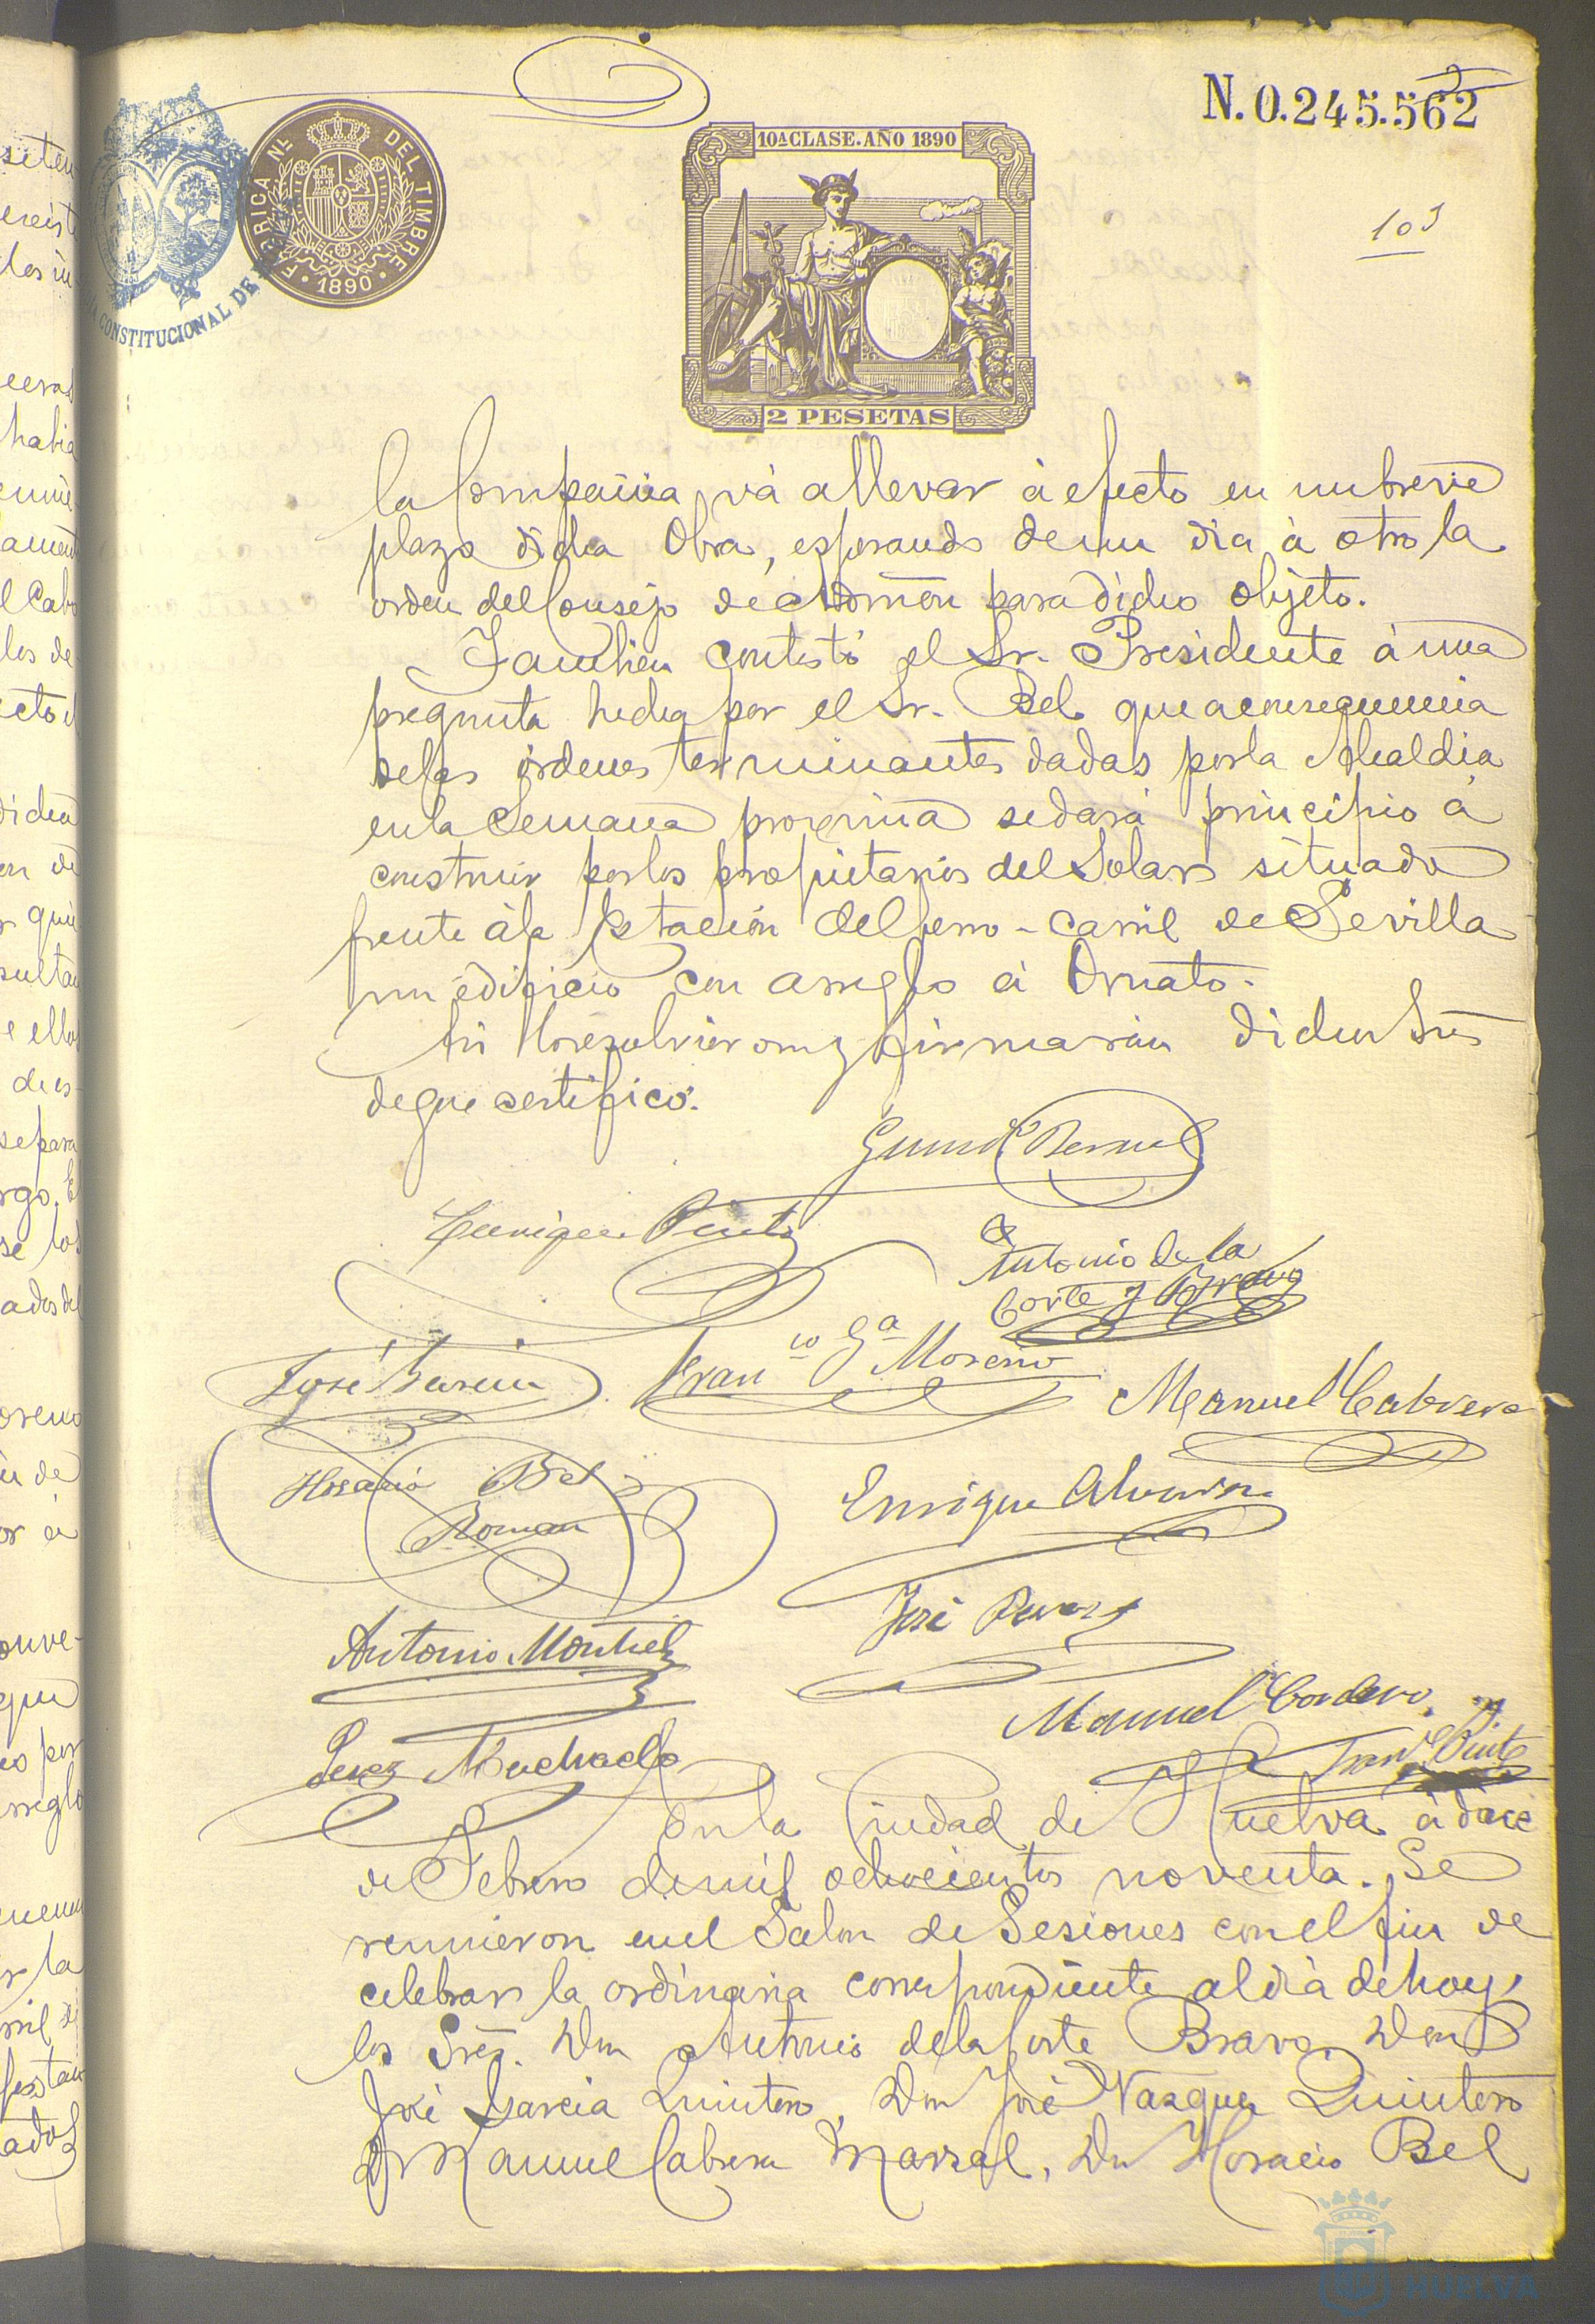 N. 0.245.562
FABRICA Nl. DEL TIMBRE
1890
CONSTITUCIONAL DE
10ª CLASE. AÑO 1890
2 PESETAS
103
la Compañia vá a llevar á efecto en un breve
plazo dicha Obra, esperando de un dia á otro la
orden del Consejo de Admón para dicho objeto.
Tambien contestó el Sr. Presidente á una
pregunta hecha por el Sr. Bel que a consecuencia
de las órdenes terminantes dadas por la Alcaldia
en la Semana proxima se dará principio á
construir por los propietarios del Solar situado
frente á la Estacion del ferro-carril de Sevilla
un edificio con arreglo á Ornato.
Asi lo resolvieron y firmarán dichos Sres
de que certifico.
Antonio de la
Corte y Bravo
José Garcia
Franco Ga Moreno
Manuel Cabrera
Horacio Bel
Roman
Enrique
Antonio Montiel
José
Manuel Cordero
Perez Machado
Pinto
En la Ciudad de Huelva á doce
de Febrero de mil ochocientos noventa. Se
reunieron en el Salon de Sesiones con el fin de
celebrar la ordinaria correspondiente al dia de hoy,
los Sres. Don Antonio de la Corte Bravo, Don
José Garcia Quintero, Don José Vazquez Quintero
D. Manuel Cabrera Marzal, Dn Horacio Bel
HUELVA